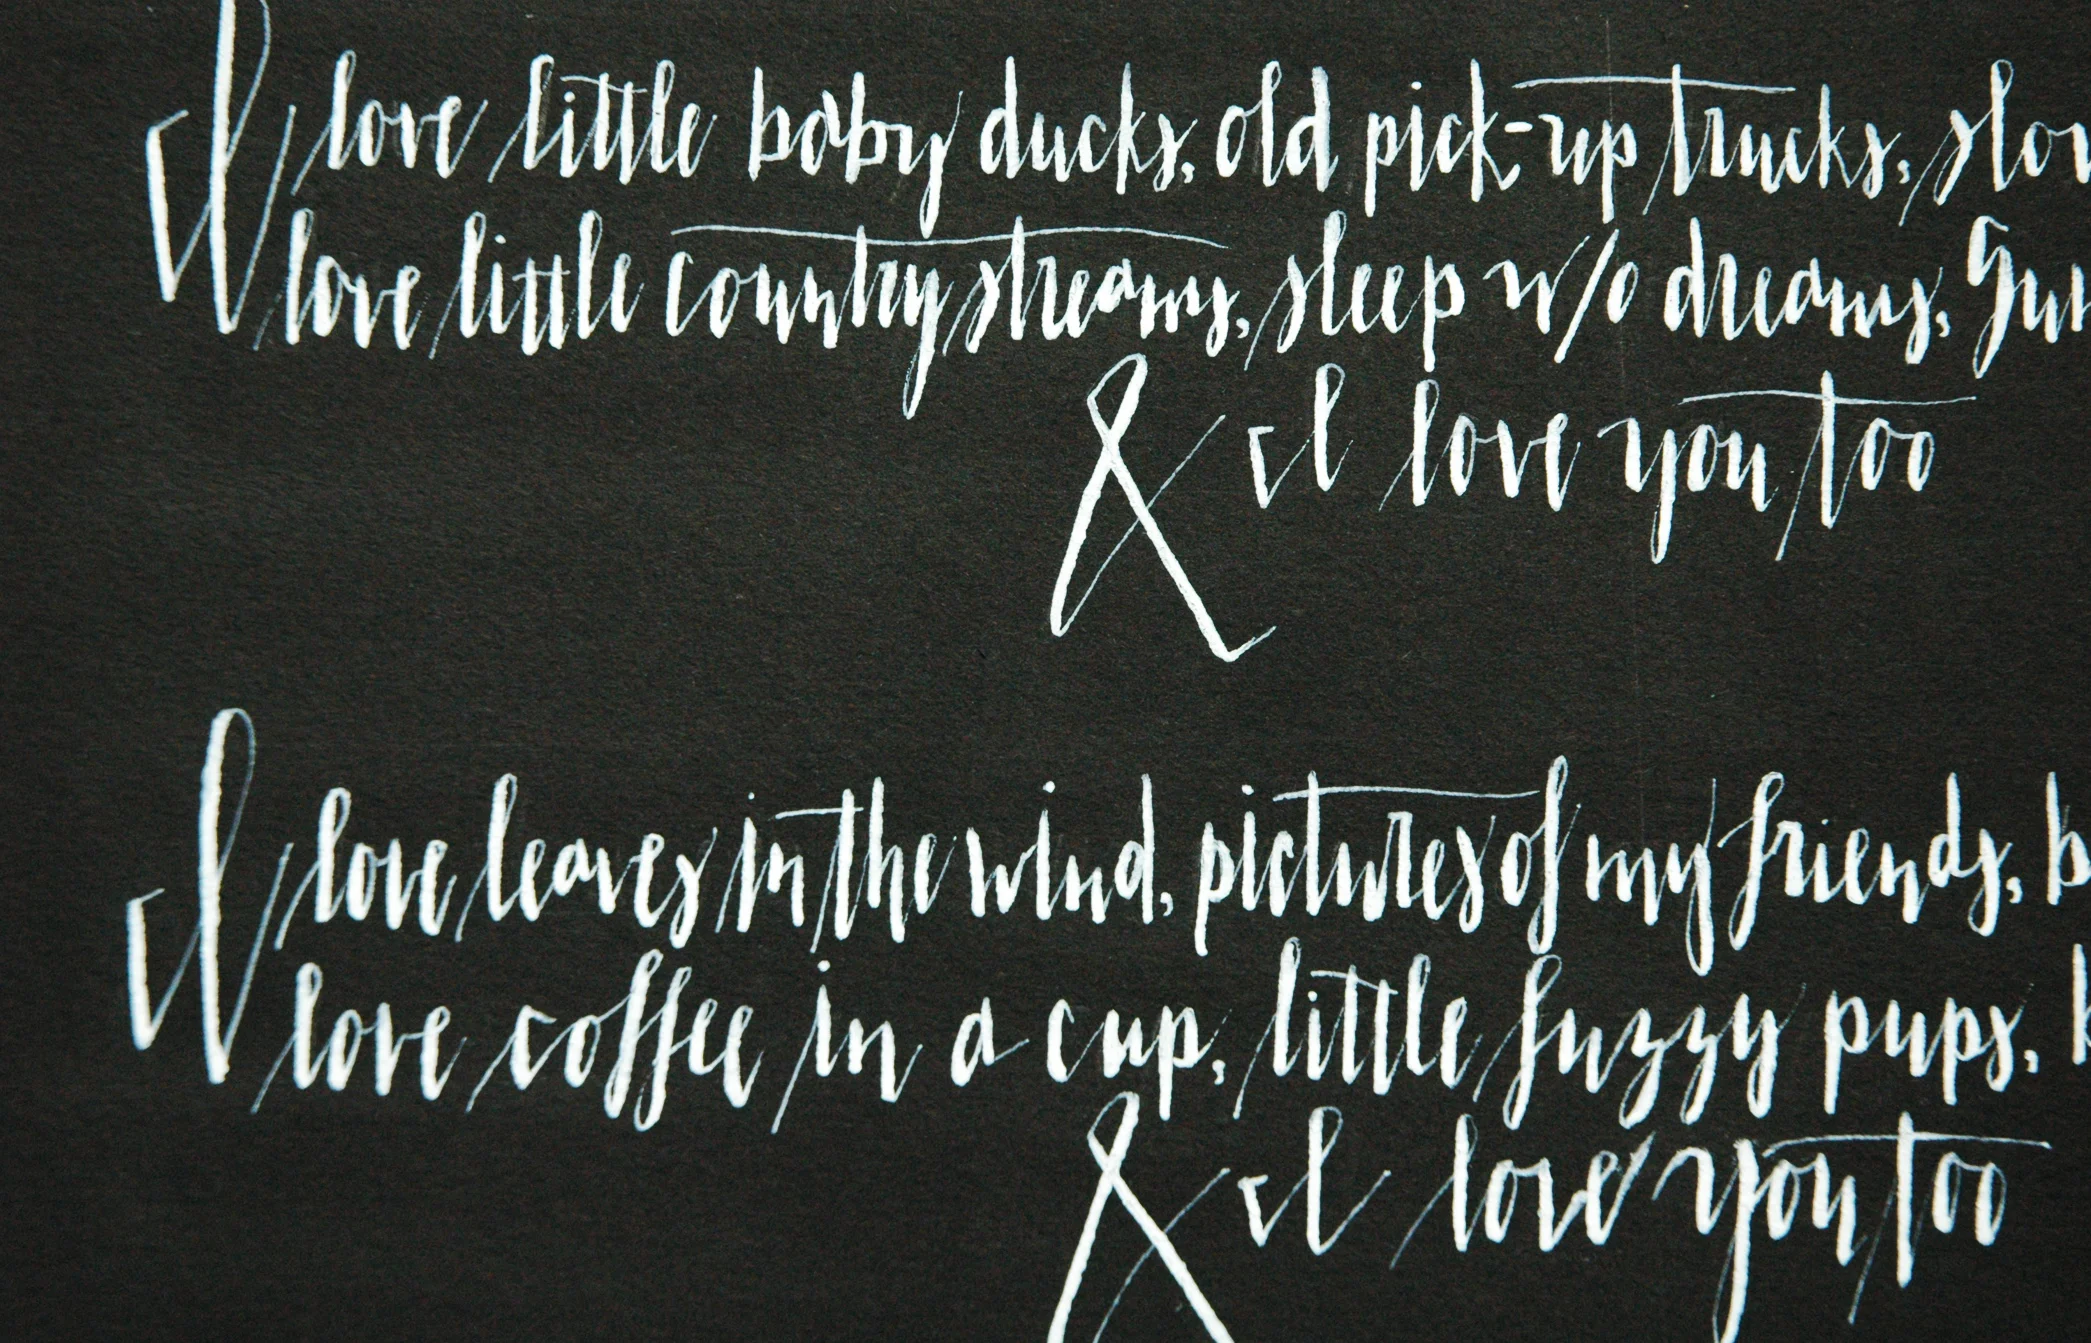 I love little baby ducks, old pick-up trucks, slow
love little country streams, sleep w/o dreams, Sun
& I love you too
I love leaves in the wind, pictures of my friends, b
love coffee in a cup, little fuzzy pups, b
& I love you too